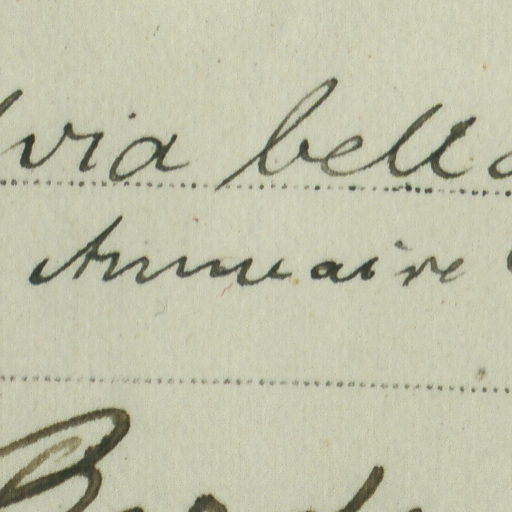 via bella
Annuaire